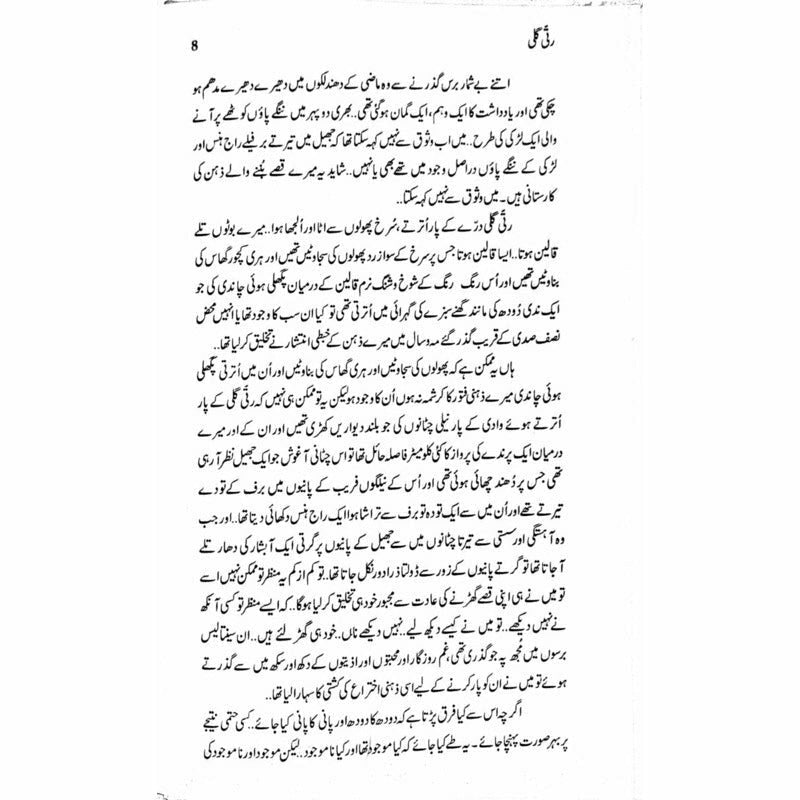 رتّی گلی
8
اتنے بے شمار برس گذرنے سے وہ ماضی کے دھندلکوں میں دھیرے دھیرے مدھم ہو
چکی تھی اور یادداشت کا ایک وہم، ایک گمان ہو گئی تھی.. بھری دوپہر میں ننگے پاؤں کوٹھے پر آنے
والی ایک لڑکی کی طرح.. میں اب وثوق سے نہیں کہہ سکتا تھا کہ جھیل میں تیرتے برفیلے راج ہنس اور
لڑکی کے ننگے پاؤں دراصل وجود میں تھے بھی یا نہیں.. شاید یہ میرے قصے بُننے والے ذہن کی
کارستانی ہیں۔ میں وثوق سے نہیں کہہ سکتا..
رتّی گلی درّے کے پار اُترتے، سُرخ پھولوں سے اٹا اور اُلجھا ہوا.. میرے بوٹوں تلے
قالین ہوتا.. ایسا قالین ہوتا جس پر سرخ کے سوا زرد پھولوں کی سجاوٹیں تھیں اور ہری کچور گھاس کی
بناوٹیں تھیں اور اُس رنگ رنگ کے شوخ و شنگ نرم قالین کے درمیان پگھلی ہوئی چاندی کی جو
ایک ندی دُودھ کی مانند گھنے سبزے کی گہرائی میں اُترتی تھی تو کیا ان سب کا وجود تھا یا انہیں محض
نصف صدی کے قریب گذر گئے مہ و سال میں میرے ذہن کے خبطی انتشار نے تخلیق کر لیا تھا..
ہاں یہ ممکن ہے کہ پھولوں کی سجاوٹیں اور ہری گھاس کی بناوٹیں اور اُن میں اُترتی پگھلی
ہوئی چاندی میرے ذہنی فتور کا کرشمہ نہ ہوں اُن کا وجود ہو لیکن یہ تو ممکن ہی نہیں کہ رتّی گلی کے پار
اُترتے ہوئے وادی کے پار نیلی چٹانوں کی جو بلند دیواریں کھڑی تھیں اور ان کے اور میرے
درمیان ایک پرندے کی پرواز کا کئی کلومیٹر فاصلہ حائل تھا تو اس چٹانی آغوش جو ایک جھیل نظر آ رہی
تھی جس پر دُھند چھائی ہوئی تھی اور اُس کے نیلگوں فریب کے پانیوں میں برف کے تودے
تیرتے تھے اور اُن میں سے ایک تودہ تو برف سے تراشا ہوا ایک راج ہنس دکھائی دیتا تھا.. اور جب
وہ آہستگی اور سستی سے تیرتا چٹانوں میں سے جھیل کے پانیوں پر گرتی ایک آبشار کی دھار تلے
آ جاتا تھا تو گرتے پانیوں کے زور سے ڈولتا ذرا دور نکل جاتا تھا.. تو کم از کم یہ منظر تو ممکن نہیں اسے
تو میں نے ہی اپنی قصے گھڑنے کی عادت سے مجبور خود ہی تخلیق کر لیا ہو گا.. کہ ایسے منظر تو کسی آنکھ
نے نہیں دیکھے.. تو میں نے کیسے دیکھ لیے.. نہیں دیکھے ناں.. خود ہی گھڑ لئے ہیں.. ان سینتالیس
برسوں میں مُجھ پہ جو گذری تھی، غم روزگار اور محبتوں اور اذیتوں کے دکھ اور سکھ میں سے گذرتے
ہوئے تو میں نے ان کو پار کرنے کے لیے اسی ذہنی اختراع کی کشتی کا سہارا لیا تھا..
اگرچہ اس سے کیا فرق پڑتا ہے کہ دودھ کا دودھ اور پانی کا پانی کیا جائے.. کسی حتمی نتیجے
پر بہر صورت پہنچا جائے۔ یہ طے کیا جائے کہ کیا موجود تھا اور کیا ناموجود.. لیکن موجود اور ناموجود کی